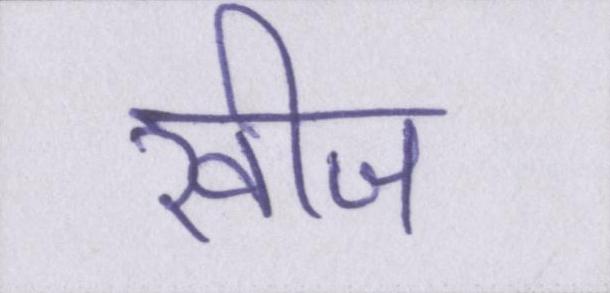 खीज